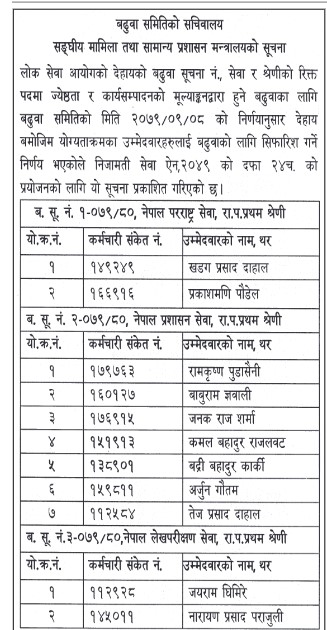 बढुवा समितिको सचिवालय
सङ्घीय मामिला तथा सामान्य प्रशासन मन्त्रालयको सूचना
लोक सेवा आयोगको देहायको बढुवा सूचना नं., सेवा र श्रेणीको रिक्त
पदमा ज्येष्ठता र कार्यसम्पादनको मूल्याङ्कनद्वारा हुने बढुवाका लागि
बढुवा समितिको मिति २०७९/०९/०८ को निर्णयानुसार देहाय
बमोजिम योग्यताक्रमका उम्मेदवारहरुलाई बढुवाको लागि सिफारिश गर्ने
निर्णय भएकोले निजामती सेवा ऐन,२०४९ को दफा २४च. को
प्रयोजनको लागि यो सूचना प्रकाशित गरिएको छ।
ब. सू. नं. १-०७९/८०, नेपाल परराष्ट्र सेवा, रा.प.प्रथम श्रेणी
यो.क्र.नं. कर्मचारी संकेत नं. उम्मेदवारको नाम, थर
१ १४९२४९ खडग प्रसाद दाहाल
२ १६६९१६ प्रकाशमणि पौडेल
ब. सू. नं. २-०७९/८०, नेपाल प्रशासन सेवा, रा.प.प्रथम श्रेणी
यो.क्र.नं. कर्मचारी संकेत नं. उम्मेदवारको नाम, थर
१ १७९७६३ रामकृष्ण पुडासैनी
२ १६०१२७ बाबुराम ज्ञवाली
३ १७६९१५ जनक राज शर्मा
४ १५१९१३ कमल बहादुर राजलवट
५ १३८९०१ बद्री बहादुर कार्की
६ १५९८११ अर्जुन गौतम
७ ११२५८४ तेज प्रसाद दाहाल
ब. सू. नं.३-०७९/८०,नेपाल लेखपरीक्षण सेवा, रा.प.प्रथम श्रेणी
यो.क्र.नं. कर्मचारी संकेत नं. उम्मेदवारको नाम, थर
१ ११२९२८ जयराम घिमिरे
२ १४५०११ नारायण प्रसाद पराजुली